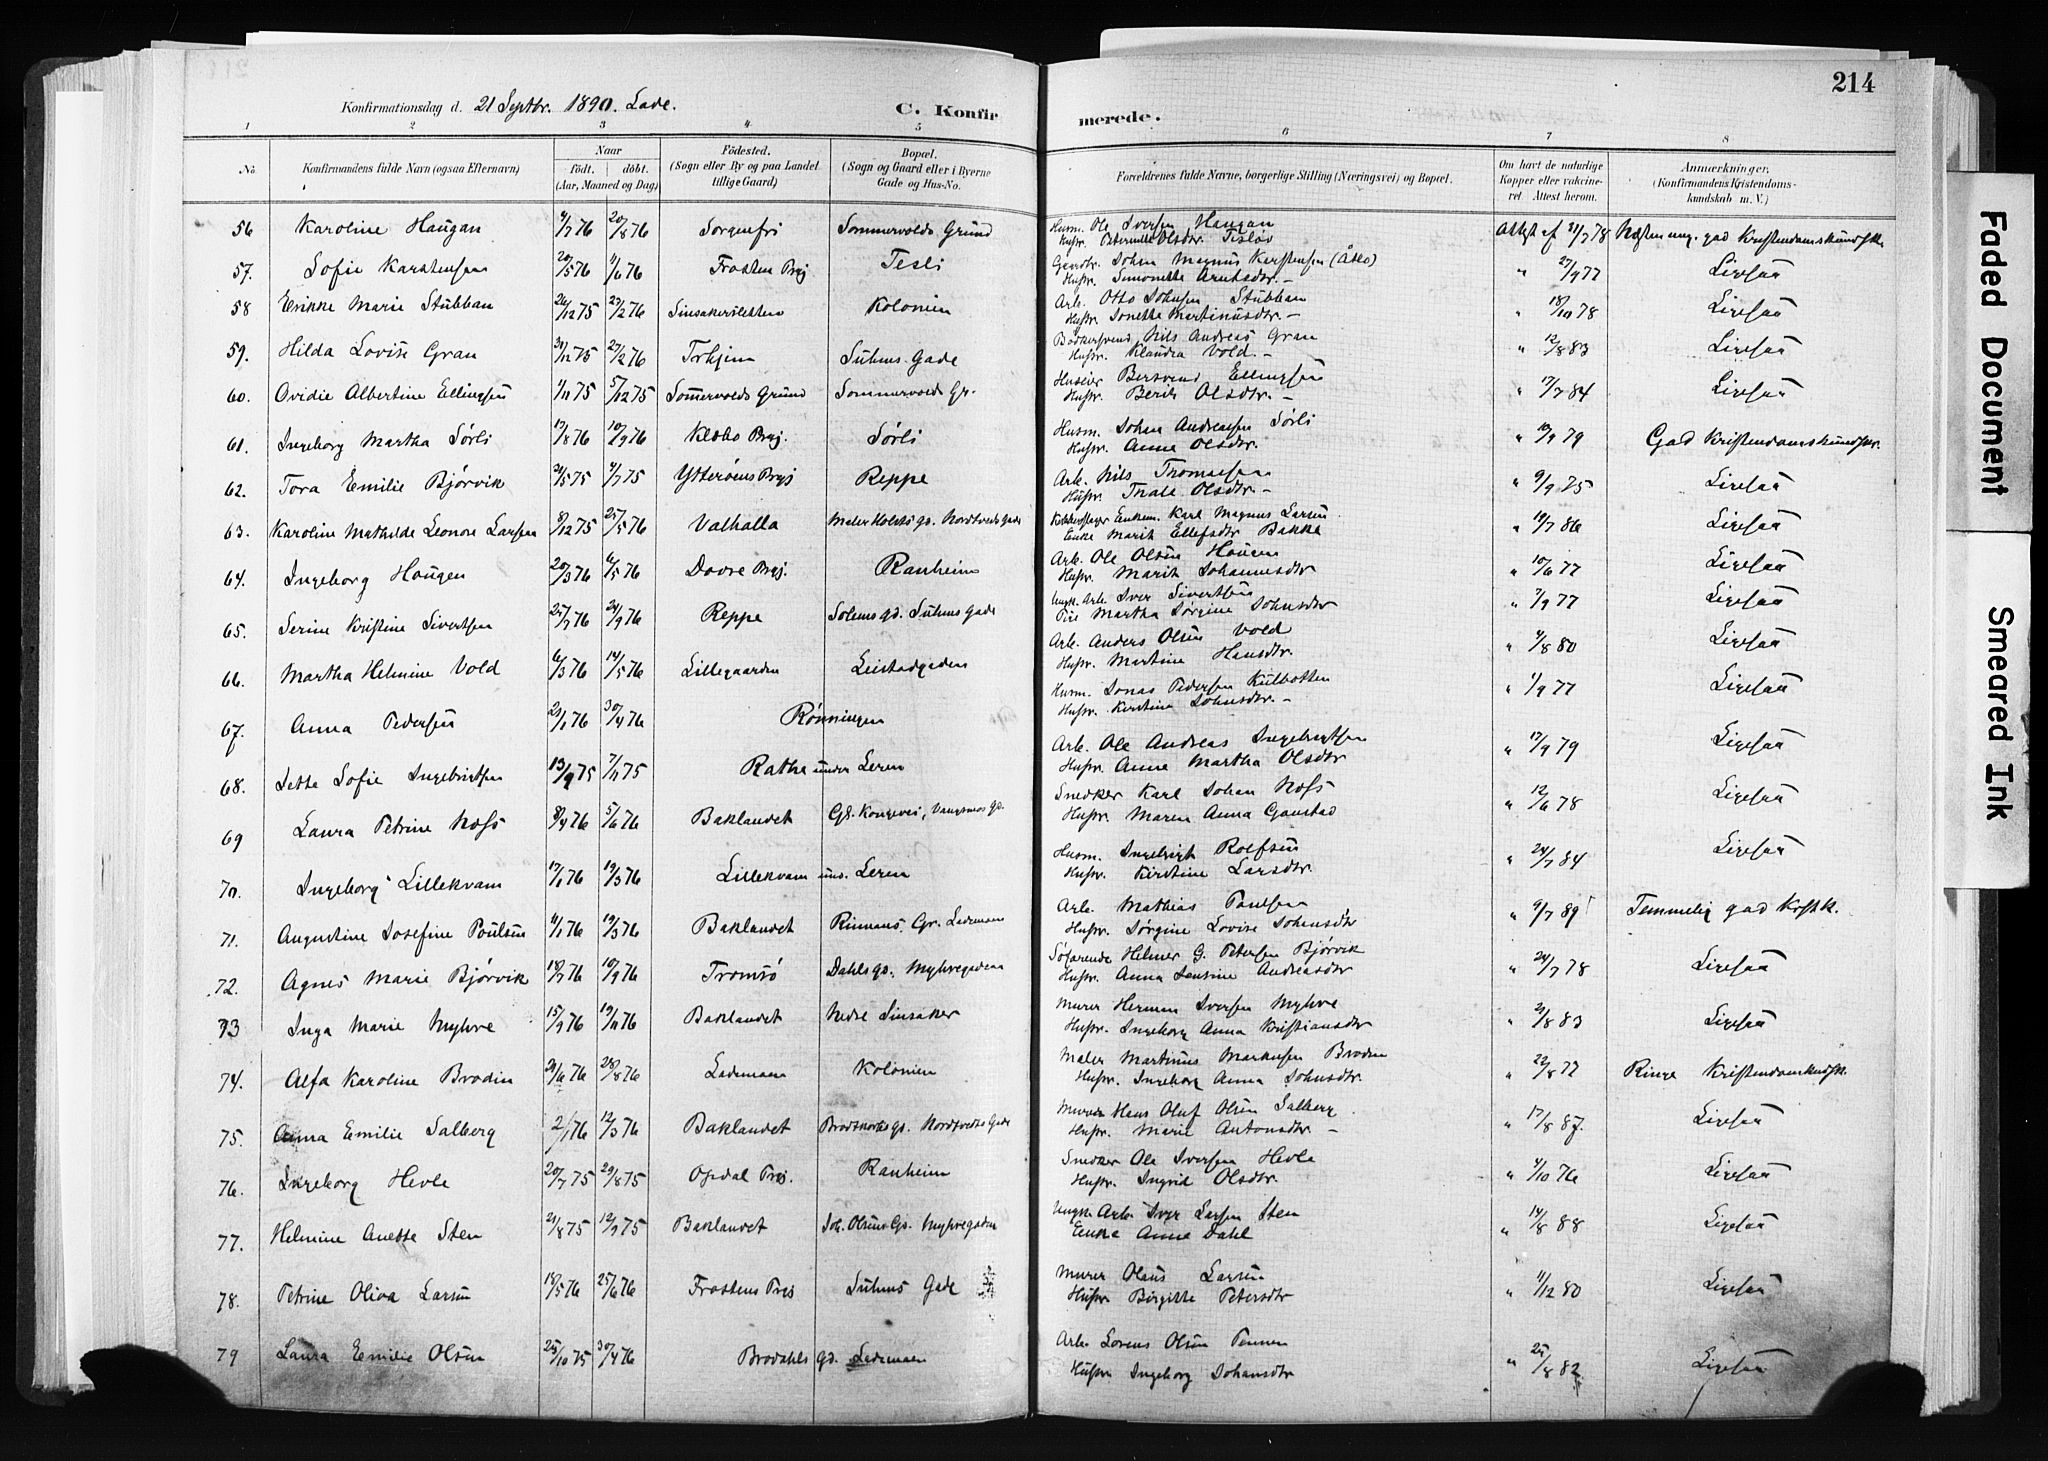 214
Konfirmationsdag d. 21 Septbr. 1890. Lade.
C. Konfirmerede.
1 2 3 4 5 6 7 8
No Konfirmandens fulde Navn (ogsaa Efternavn) Naar født. døbt. (Aar, Maaned og Dag) Fødested. (Sogn eller By og paa Landet tillige Gaard) Bopæl. (Sogn og Gaard eller i Byerne Gade og Hus-No. Forældrenes fulde Navne, borgerlige Stilling (Næringsvei) og Bopæl. Om havt de naturlige Kopper eller vakcineret. Attest herom. Anmærkninger. (Konfirmandens Kristendomskundskab m. V.)
56 Karoline Haugan 4/7 76 20/8 76 Sorgenfri Sommervolds Grund Husm. Ole Iversen Haugan
Hustr. Olsdtr. Attest af 31/7 78 Næsten
57. Sofie Karstensen 20/5 76 11/6 76 Frosten Prgj Tesli Gaardbr. Johan Magnus Karstensen
Hustr. Simonette Arntsdtr. - " 27/9 77 Ligesaa
58 Erikke Marie Stubban 26/12 75 27/2 76 Sinsakersletten Kolonien Arb. Otto Johnsen Stubban
Hustr. Jonetta Martinusdtr. - " 18/10 78 Ligesaa
59. Hilda Lovise Gran 30/12 75 27/2 76 Trhjem Suhms Gade Bødkersvend Nils Andreas Gran
Hustr. Klaudia Vold. - " 12/8 83 Ligesaa
60. Ovidie Albertine Ellingsen 1/11 75 5/12 75 Sommervolds Grund Sommervolds Gr. Huseier Bersvend Ellingsen
Hustr. Berit Olsdtr. - " 17/7 84 Ligesaa
61. Ingeborg Martha Sørli 17/8 76 10/9 76 Klæbo Prgj. Sørli Husm. Johan Andreassen Sørli
Hustr. Anne Olsdtr. " 10/9 79 God Kristendomskundsk.
62. Tora Emilie Bjørvik 21/5 75 4/7 75 Ytterøens Prgj Reppe Arb. Nils Thomassen
Hustr. Thale Olsdtr. - " 9/9 75 Ligesaa
63. Karoline Mathilde Leonora Larsen 8/12 75 25/5 76 Valhalla Maler Holsts gd. Nordtvedts Gade Enkem. Karl Magnus Larsen
Enke Marit Ellefsdtr Bakke " 19/7 86 Ligesaa
64. Ingeborg Haugen 20/3 76 6/5 76 Dovre Prgj. Ranheim Arb. Ole Olsen Haugen
Hustr. Marit Johannesdtr " 10/6 77 Ligesaa
65. Serine Kristine Sivertsen 25/7 76 24/9 76 Reppe Solemsgd. Suhmsgade Ungk. Arb. Iver Sivertsen
Pige Martha Jørgine Johnsdtr " 7/9 77 Ligesaa
66. Martha Helmine Vold 6/3 76 14/5 76 Lillegaarden Leistadgaden Arb. Anders Olsen Vold
Hustr. Martine Hansdtr. " 4/8 80 Ligesaa
67. Anna Pedersen 21/1 76 30/4 76 Rønningen Husm. Jonas Pedersen Kulbotten
Hustr. Kirstine Johnsdtr. - " 1/9 77 Ligesaa
68. Jette Sofie Ingebrigtsen 13/9 75 7/11 75 Rathe under Leren Arb. Ole Andreas Ingebrigtsen
Hustr. Anne Martha Olsdtr " 17/9 79 Ligesaa
69 Laura Petrine Moss 8/4 76 5/6 76 Baklandet Gl. Kongevei, Vangsmos gd. Snedker Karl Johan Moss
Hustr. Maren Anna Gamstad " 12/6 78 Ligesaa
70. Ingeborg Lillekvam 17/1 76 19/3 76 Lillekvam und. Leren Husm. Ingebrigt Rolfsen
Hustr. Kirstine Larsdtr. " 24/7 84 Ligesaa
71. Augustine Josefine Poulsen 11/1 76 19/3 76 Baklandet Rinnans Gr. Lademoen Arb. Mathias Paulsen
Hustr. Jørgine Lovise Johansdtr " 9/7 89 Temmelig god Krstk.
72. Agnes Marie Bjørvik 18/7 76 10/9 76 Tromsø Dahls gd. Myhregaden Søfarende Helmer G. Petersen Bjørvik
Hustr. Anna Jensine Andreasdtr " 24/7 78 Ligesaa
73 Inga Marie Myhre 15/9 76 19/11 76 Baklandet Nedre Sinsaker Murer Herman Iversen Myhre
Hustr. Ingeborg Anna Kristiansdtr " 21/8 83 Ligesaa
74. Alfa Karoline Brodin 24/6 76 28/8 76 Lademoen Kolonien Maler Martinus Markusen Brodin
Hustr. Ingeborg Anna Johnsdtr. " 22/8 77 Ringe Kristendomskndsk.
75. Anna Emilie Salberg 2/1 76 12/3 76 Baklandet Nordtvedts Gade Murer Hans Oluf Olsen Salberg
Hustr. Marie Antonsdtr - " 17/8 87. Ligesaa
76. Ingeborg Hevle 20/7 75 29/8 75 Opdal Prgj. Ranheim Snedker Ole Iversen Hevle
Hustr. Ingrid Olsdtr. " 4/10 76 Ligesaa
77. Helmine Anette Sten 21/8 75 12/9 75 Baklandet Joh. Olsens Gd. Myhregaden Ungk. Arb. Iver Larsen Sten
Enke Anne Dahl " 14/8 88 Ligesaa
78. Petrine Oliva Larsen 18/5 76 25/6 76 Frostens Prgj Suhms Gade Murer Olaus Larsen
Hustr Birgitte Petersdtr " 11/12 80 Ligesaa
79 Laura Emilie Olsen 25/10 75 30/4 76 Brodahls gd. Lademoen Arb. Lorens Olsen Tennen
Hustr Ingeborg Johansdtr " 25/8 82 Ligesaa
Faded Document
Smeared Ink